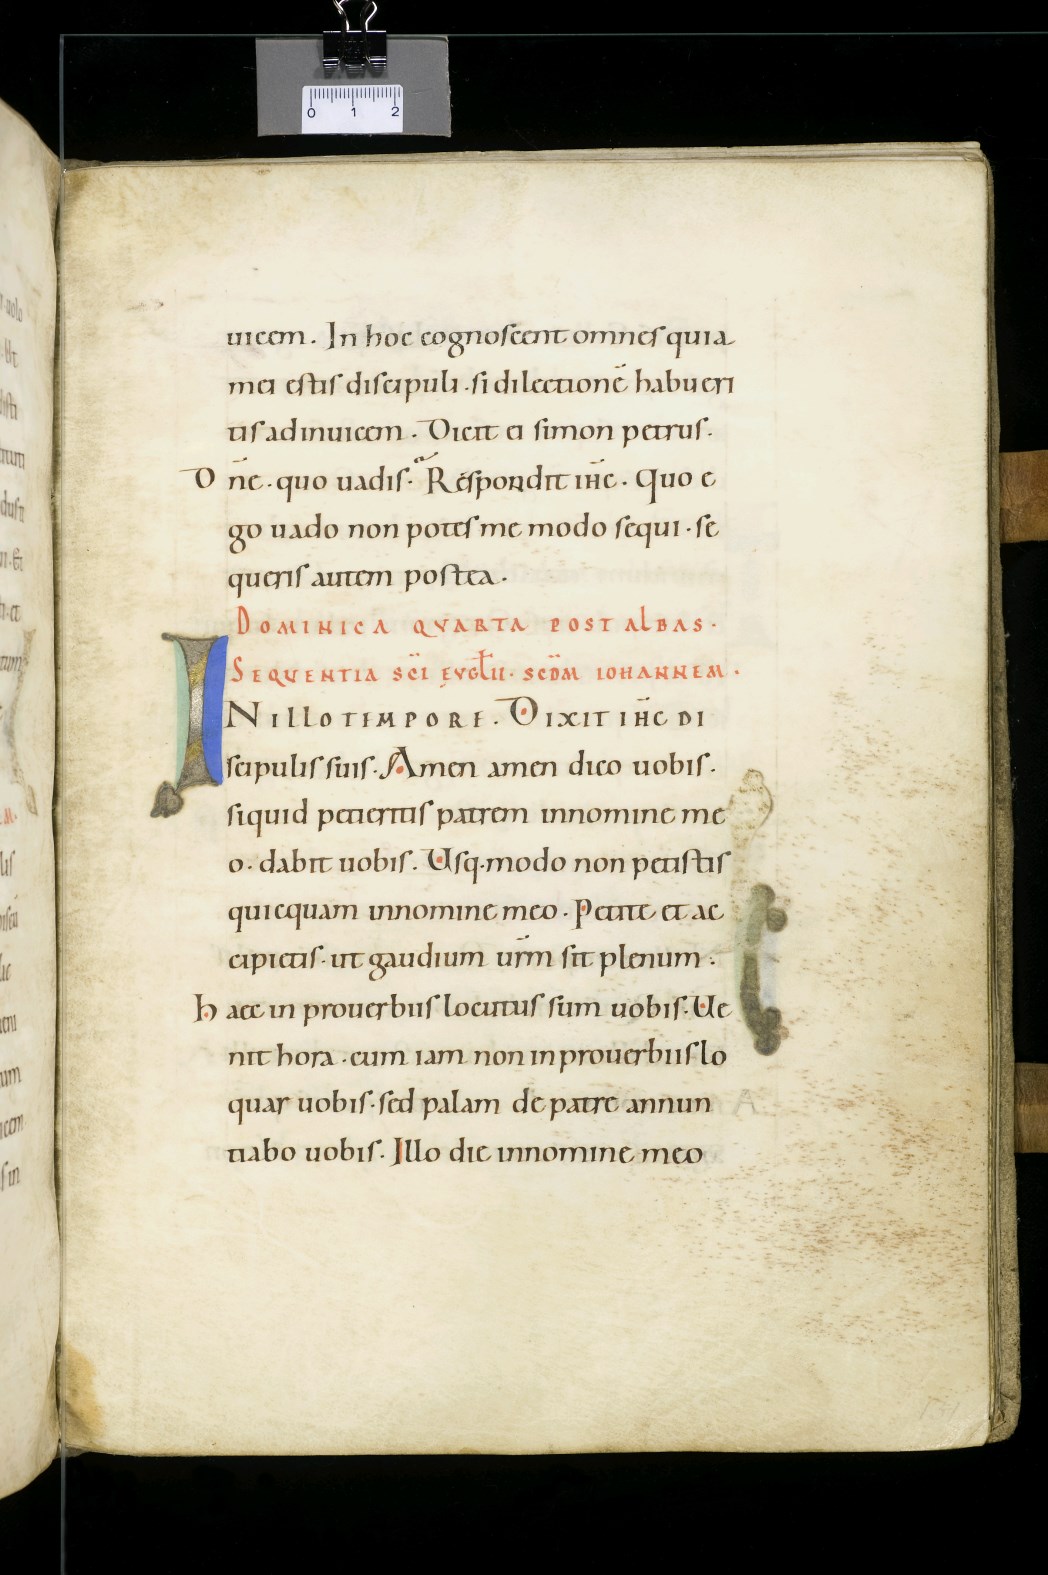 0 1 2
uicem. In hoc cognoscent omnes quia
mei estis discipuli. si dilectionē habueri
tis adinuicem. Dicit ei simon petrus.
Dn̄e. quo uadis. Respondit ih̄c. Quo e
go uado non potes me modo sequi. se
queris autem postea.
DOMINICA QVARTA POST ALBAS.
SEQUENTIA SC̄I EVGLII. SCD̄M IOHANNEM.
IN ILLO TEMPORE. DIXIT IH̄C DI
scipulis suis. Amen amen dico uobis.
siquid petieritis patrem innomine me
o. dabit uobis. Usq. modo non petistis
quicquam innomine meo. Petite et ac
cipietis. ut gaudium ur̄m sit plenum.
Haec in prouerbiis locutus sum uobis. Ue
nit hora. cum iam non in prouerbiis lo
quar uobis. sed palam de patre annun
tiabo uobis. Illo die innomine meo